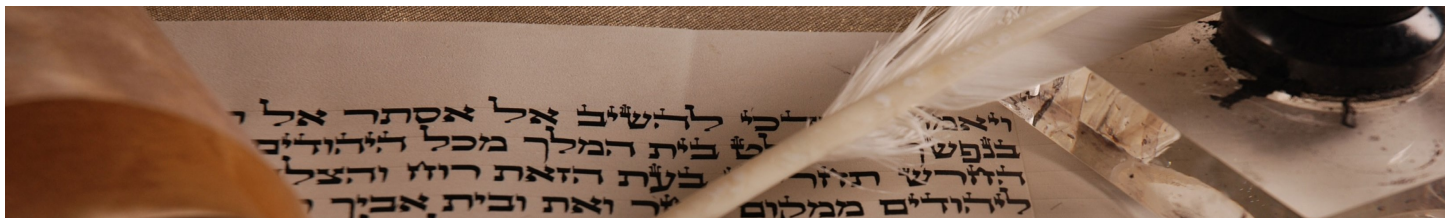 להשיב אל אסתר אל
בית המלך מכל היהודים
החרש בעת הזאת רוח
ליהודים ממקום ואת ובית אביך